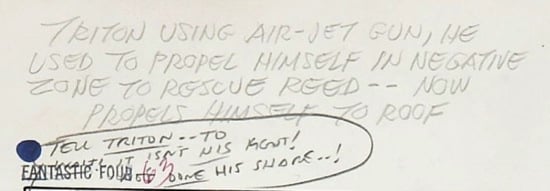 TRITON USING AIR-JET GUN, HE
USED TO PROPEL HIMSELF IN NEGATIVE
ZONE TO RESCUE REED -- NOW
PROPELS HIMSELF TO ROOF
TELL TRITON -- TO
IT ISN'T HIS FIGHT!
FANTASTIC FOUR 63 DONE HIS SHARE --!